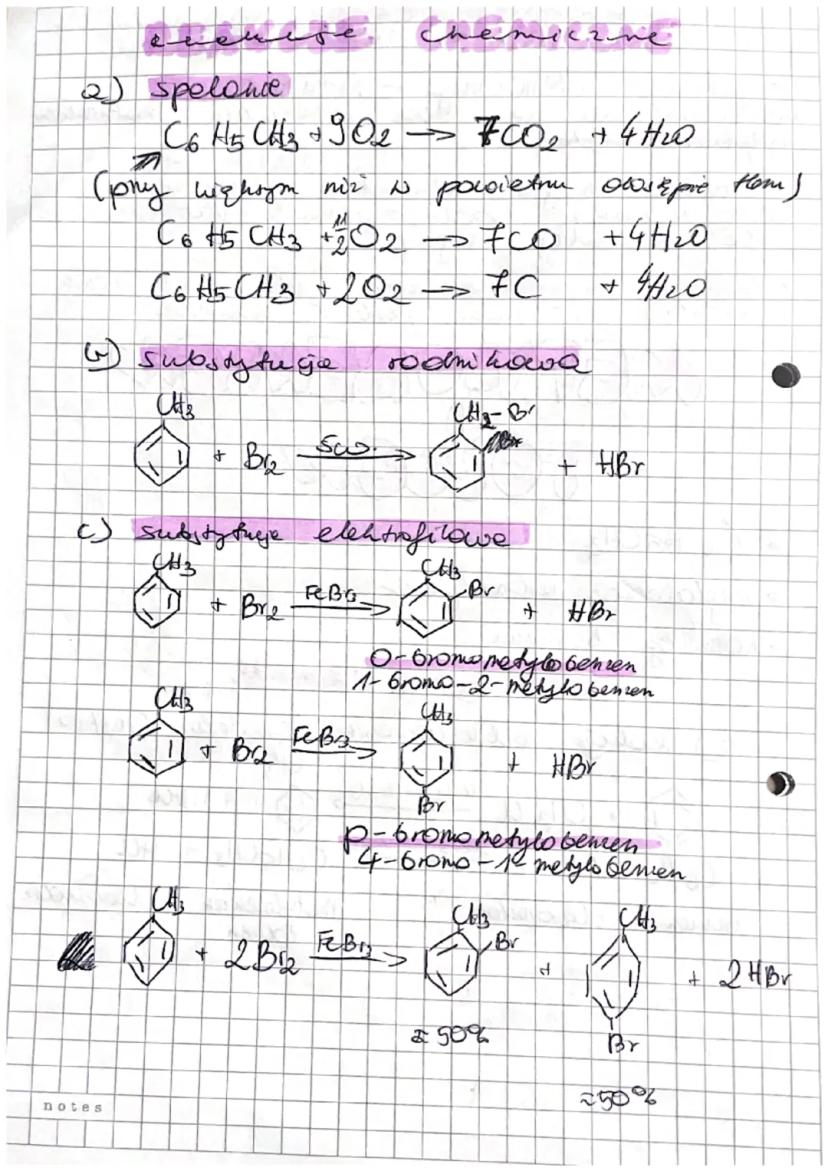 reakcje chemiczne
a) spalanie
C6H5CH3 + 9O2 → 7CO2 + 4H2O
(przy większym niż w powietrzu dostępie tlenu)
C6H5CH3 + 11/2 O2 → 7CO + 4H2O
C6H5CH3 + 2O2 → 7C + 4H2O
b) substytucja rodnikowa
CH3 + Br2 św. → CH2-Br + HBr
c) substytucja elektrofilowa
CH3 + Br2 FeBr3 → CH3 Br + HBr
o-bromometylobenzen
1-bromo-2-metylobenzen
CH3 + Br2 FeBr3 → CH3 Br + HBr
p-bromometylobenzen
4-bromo-1-metylobenzen
CH3 + 2Br2 FeBr3 → CH3 Br + CH3 Br + 2HBr
≈50%
≈50%
notes